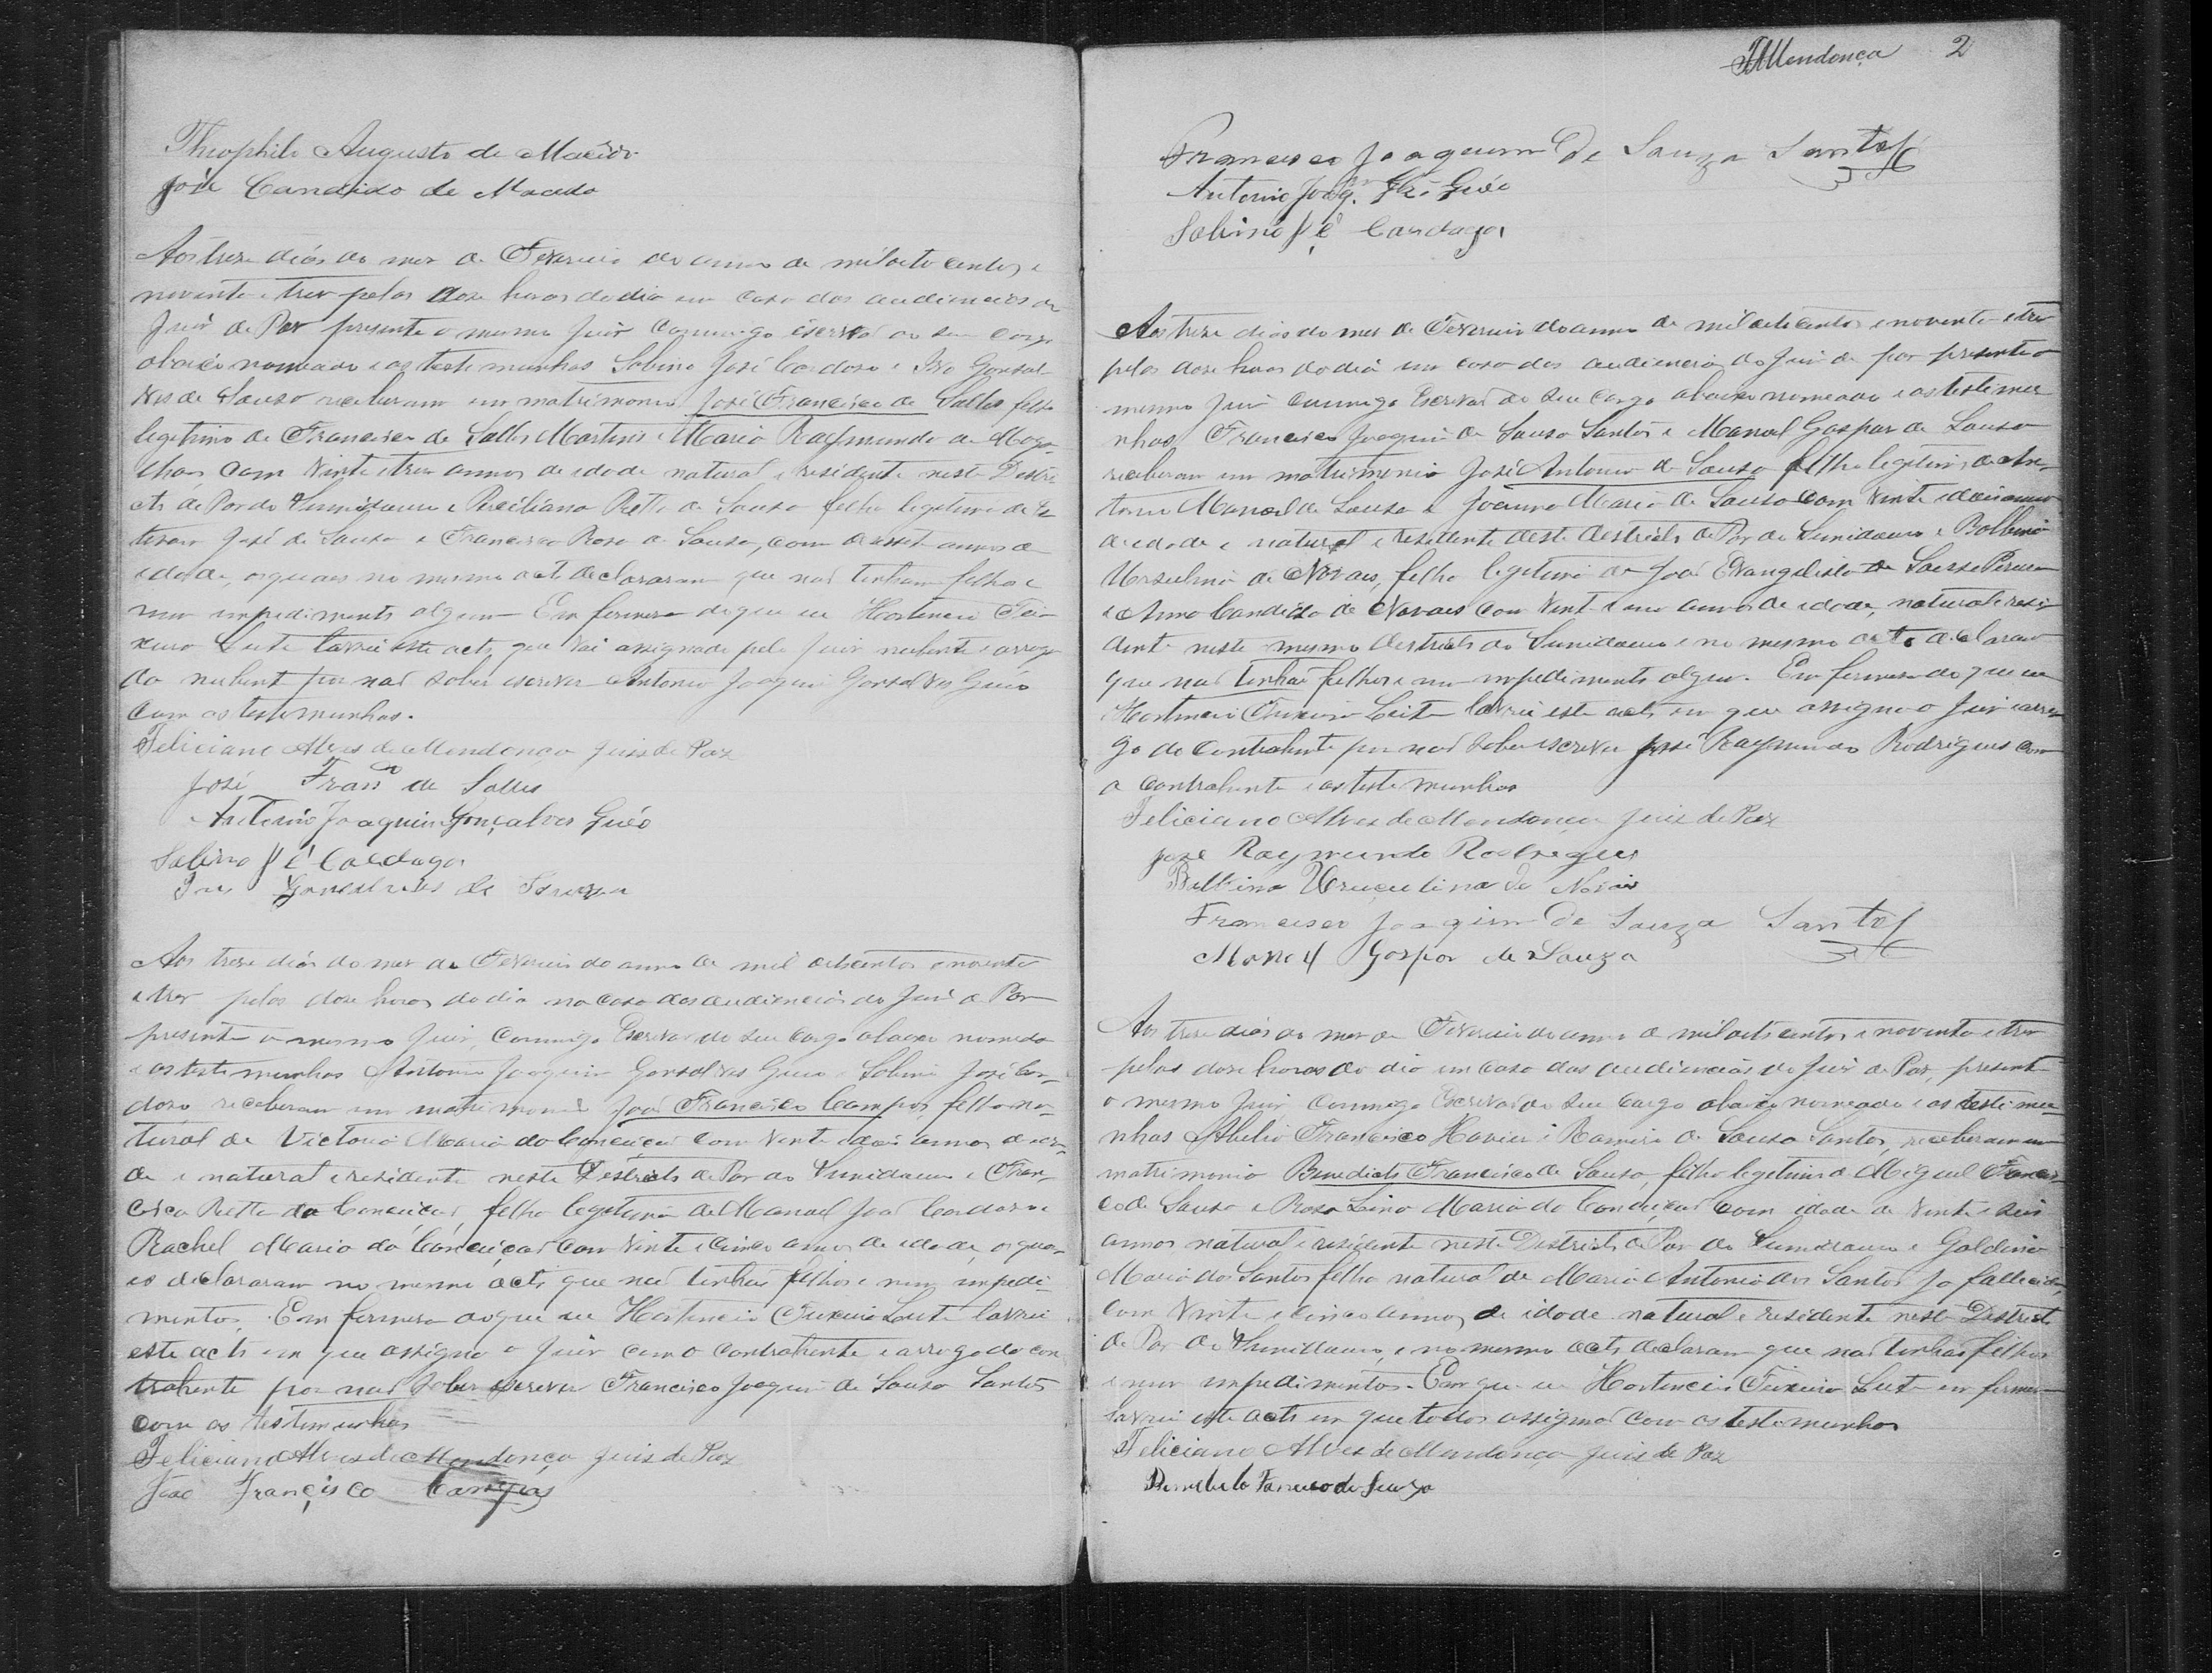 Theophilo Augusto de Macêdo
José Candido de Macedo
Aos treze dias do mez de Fevereiro do anno de mil oito centos e
noventa e trez pelas doze horas do dia em caza das audiencias do
Juiz de Paz presente o mesmo Juiz Commigo escrivão do seu cargo
abaixo nomeado e as testemunhas Sabino José Cardoso e Ivo Gonsal-
ves de Souza receberam em matrimonio José Francisco de Salles filho
legitimo de Francisco de Salles Martins e Maria Raymunda de Maga-
lhães com vinte e trez annos de idade natural e residente neste Destri-
cto de Paz do Sumidouro e Retta de Souza filha legitima de
José de Souza e Francisca Rosa de Souza, com desesete annos de
idade, os quaes no mesmo acto declararam que não tinham filhos e
nem impedimento algum Em firmeza do que eu Hortencio Tei-
xeira Leite lavrei este acto que vai assignado pelo Juiz nubente e arrogo
da nubente por não saber escrever Antonio Joaquim Gonsalves Guéo
com as testemunhas.
Feliciano Alves de Mendonça Juis de Paz
José Franco de Salles
Antonio Joaquim Gonçalves Guéo
Sabino Je Cardozo
Ivo Gonsalves de Souza
Aos treze dias do mez de Fevereiro do anno de mil oitocentos e noventa
e trez pelas doze horas do dia na caza das audiencias do Juiz de Paz
presente o mesmo Juiz, Commigo Escrivão do seu cargo abaixo nomeado
e as testemunhas Antonio Joaquim Gonsalves Gueo e Sabino José Car-
dozo receberam em matrimonio João Francisco Campos filho na-
tural de Victoria Maria da Conceição com vinte e dois annos de ida-
de e natural e residente neste Destricto de Paz do Sumidouro e Fran-
cisca Retta da Conceição, filha legitima de Manoel José Cardozo e
Rachel Maria da Conceição com vinte e cinco annos de idade, os qua-
es declararam no mesmo acto que não tinhão filhos e nem impedi-
mentos. Em firmeza do que eu Hortencio Teixeira Leite lavrei
este acto em que assigna o Juiz com o contrahente e arrogo da con-
trahente por não saber escrever Francisco Joaquim de Souza Santos
com as testemunhas
Feliciano Alves de Mendonça Juis de Paz
João Francisco Campos
FAMendonça 2
Francisco Joaquim de Souza Santos
Antonio Joaqm Guéo
Sabino Je Cardozo
Aos treze dias do mez de Fevereiro do anno de mil oitocentos e noventa e trez
pelas doze horas do dia em caza das audiencias do Juiz de paz presente o
mesmo Juiz commigo Escrivão do seu cargo abaixo nomeado e as testemu-
nhas Francisco Joaquim de Souza Santos e Manoel Gaspar de Souza
receberam em matrimonio José Antonio de Souza filho legitimo de An-
tonio Manoel de Souza e Joanna Maria de Souza com vinte e dois annos
de idade e natural e residente deste destricto de Paz do Sumidouro e Balbina
Ursulina de Novaes, filha legitima de João Evangelista de Souza
e Anna Candida de Novaes com vinte e um annos de idade, natural e resi-
dente neste mesmo destricto do Sumidouro e no mesmo acto declaram
que não tinhão filhos e nem impedimento algum. Em firmeza do que eu
Hortencio Teixeira Leite lavrei este acto em que assigna o Juiz e arro-
go do contrahente por não saber escrever José Raymundo Rodrigues com
a contrahente e as testemunhas
Feliciano Alves de Mendonça Juis de Paz
José Raymundo Rodrigues
Balbina Uruculina de Novais
Francisco Joaqim de Souza Santos
Manoel Gaspar de Souza
Aos treze dias do mez de Fevereiro do anno de mil oito centos e noventa e trez
pelas doze horas do dia em caza das audiencias do Juiz de Paz, presente
o mesmo Juiz Commigo Escrivão do seu cargo abaixo nomeado e as testemu-
nhas Francisco Xavier e Ramiro de Souza Santos, receberam em
matrimonio Benedicto Francisco de Souza, filho legitimo de Miguel Francis-
co de Souza e Roza Lina Maria da Conceição com idade de vinte e seis
annos natural e residente neste Destricto de Paz do Sumidouro e Galdina
Maria dos Santos filha natural de Maria Antonia dos Santos ja fallecida,
com vinte e cinco annos de idade natural e residente neste Destricto
de Paz do Sumidouro, e no mesmo acto declaram que não tinhão filhos
e nem impedimentos. Em que eu Hortencio Teixeira Leite em firmeza
lavrei este acto em que todos assignão com as testemunhas
Feliciano Alves de Mendonça Juis de Paz
Benedicto Francisco de Souza